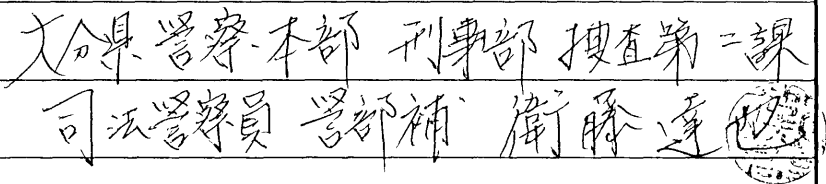 大分県警察本部 刑事部 捜査第二課
司法警察員 警部補 衛藤 達也